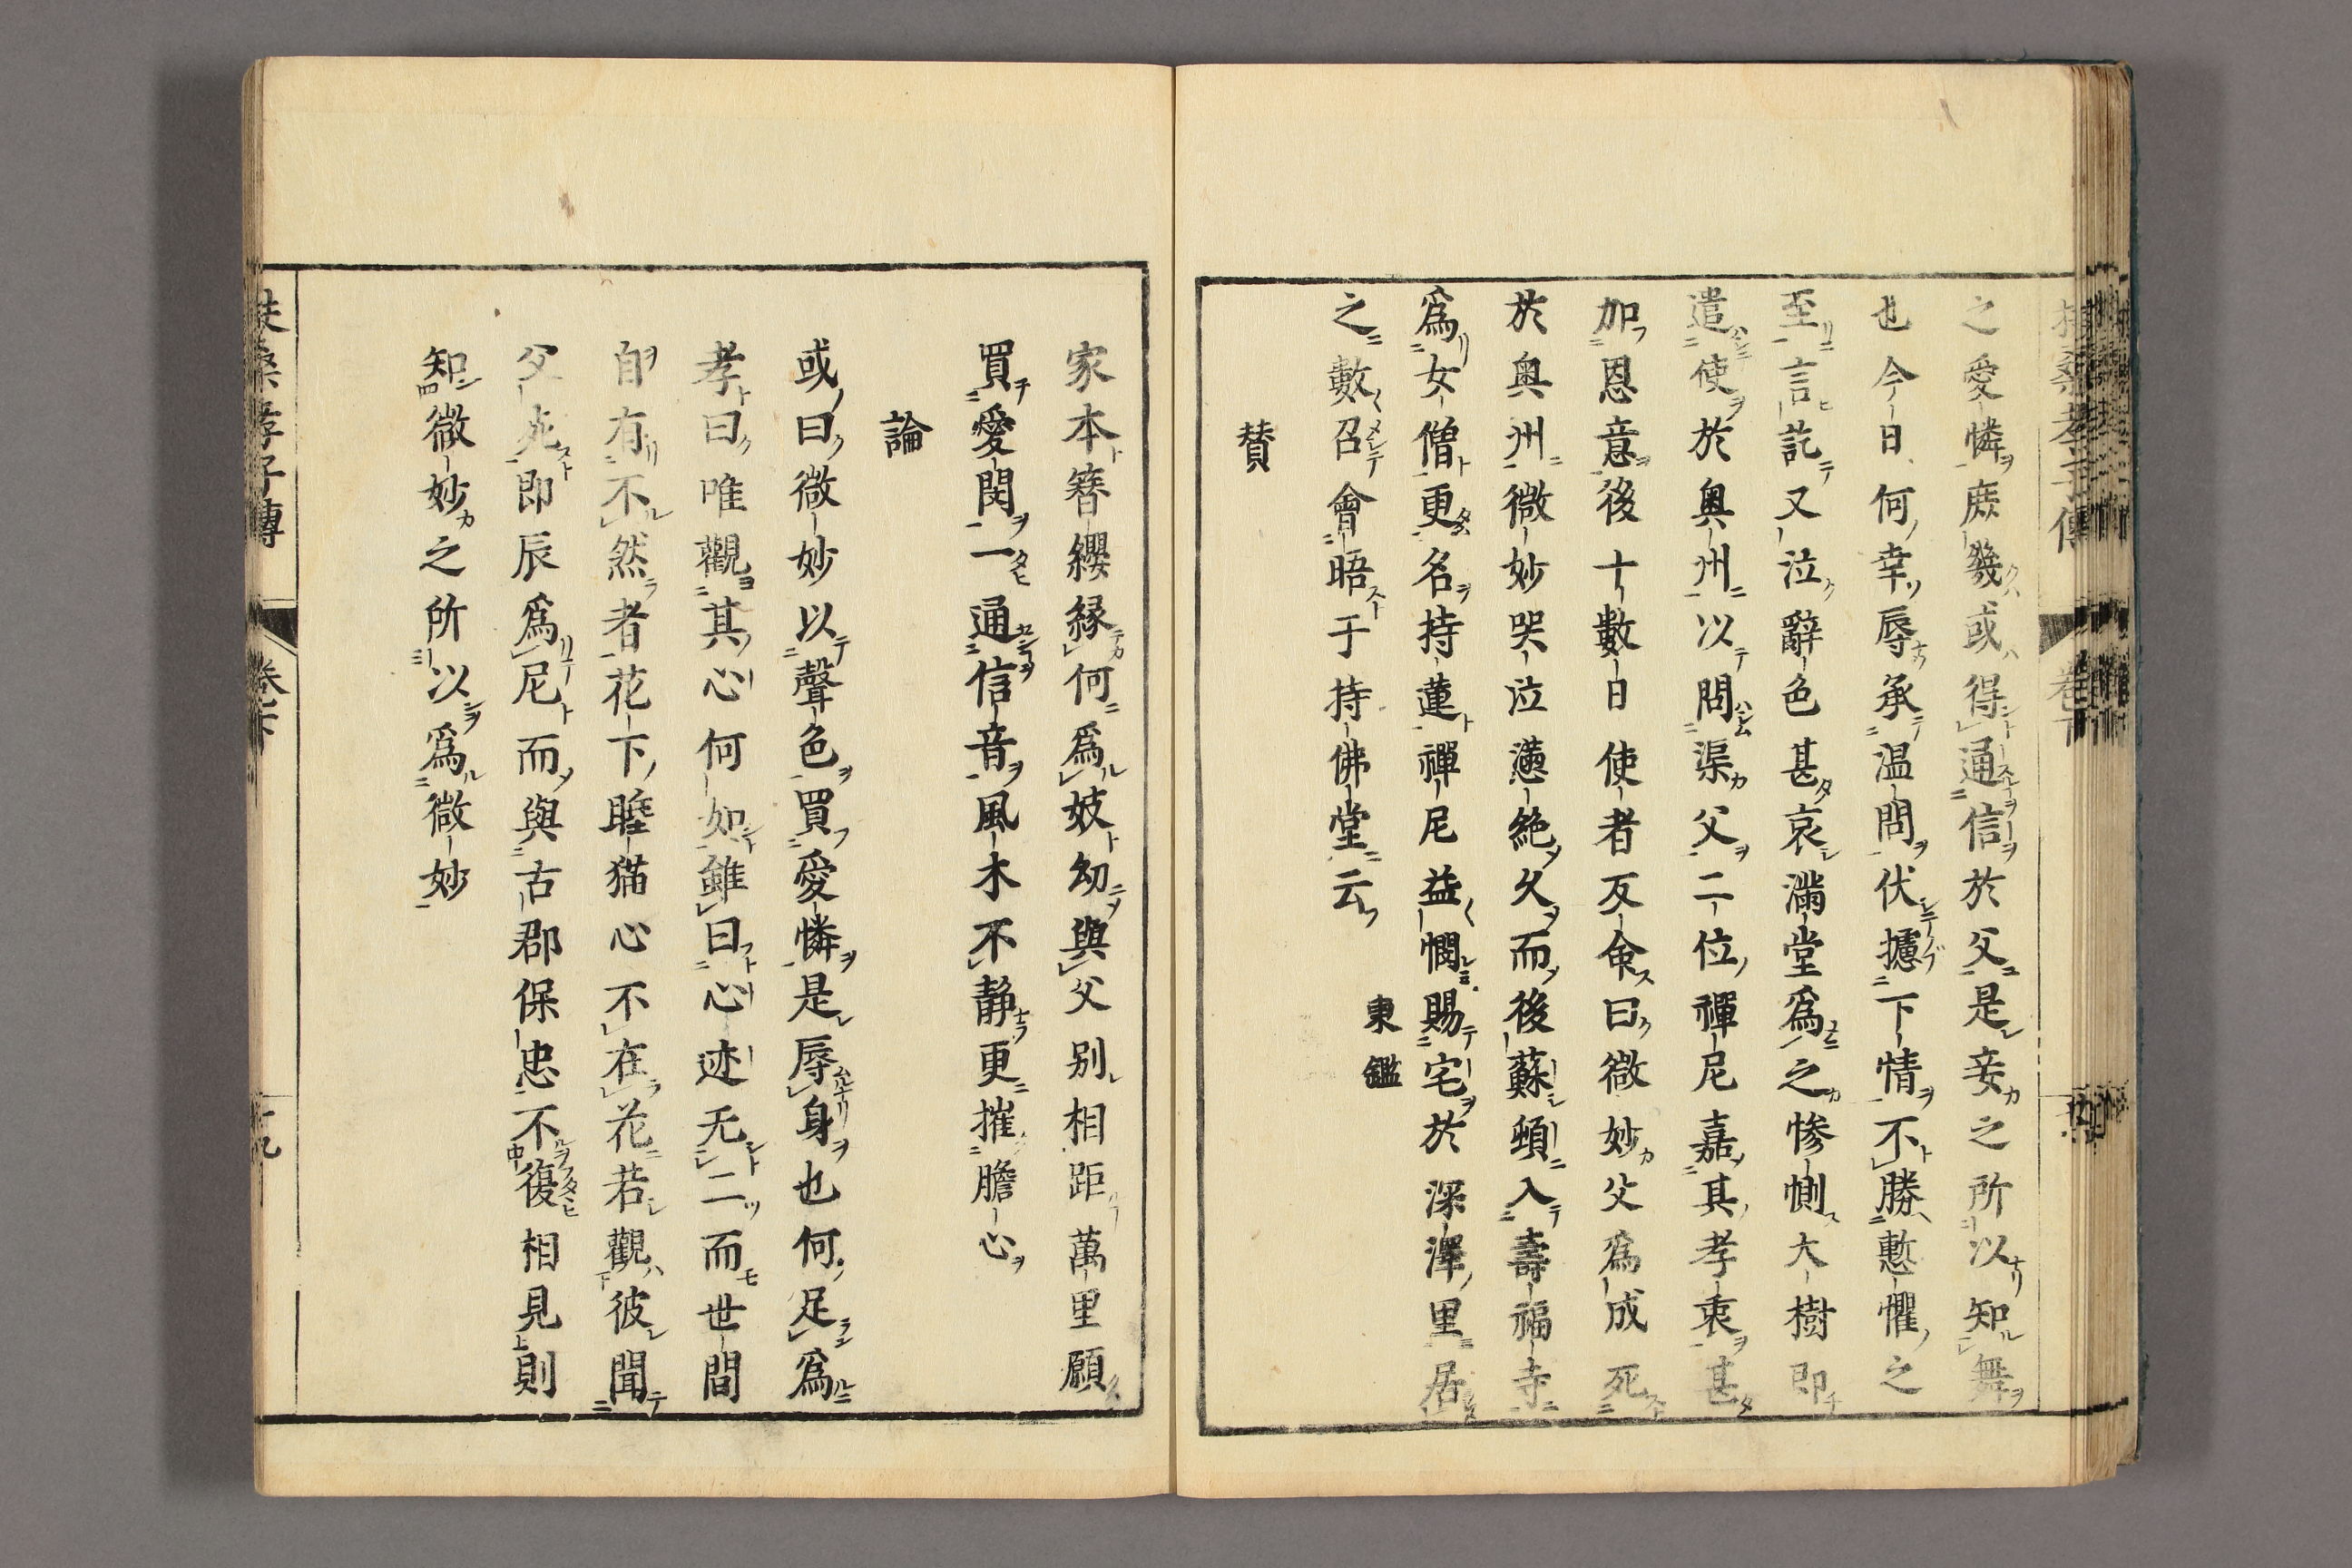 之愛憐庻幾或得通信於父是妾之所以知舞
也今日何幸辱承温問伏攄下情不勝慙懼之
至言訖又泣辭色甚哀滿堂爲之惨惻大樹即
遣使於奥州以問渠父二位禪尼嘉其孝衷甚
加恩意後十數日使者反命曰微妙父爲成死
於奥州微妙哭泣懣絶久而後蘇頓入壽福寺
爲女僧更名持蓮禪尼益憫賜宅於深澤里居
之數召會晤于持佛堂云
東鑑
賛
家本簪纓縁何爲妓幼與父別相距萬里願
買愛閔一通信音風木不静更摧膽心
論
或曰微妙以聲色買愛憐是辱身也何足爲
孝曰唯觀其心何如雖曰心迹无二而世間
自有不然者花下睡猫心不在花若觀彼聞
父死即辰爲尼而與古郡保忠不復相見則
知微妙之所以爲微妙
扶桑孝子傳
卷下